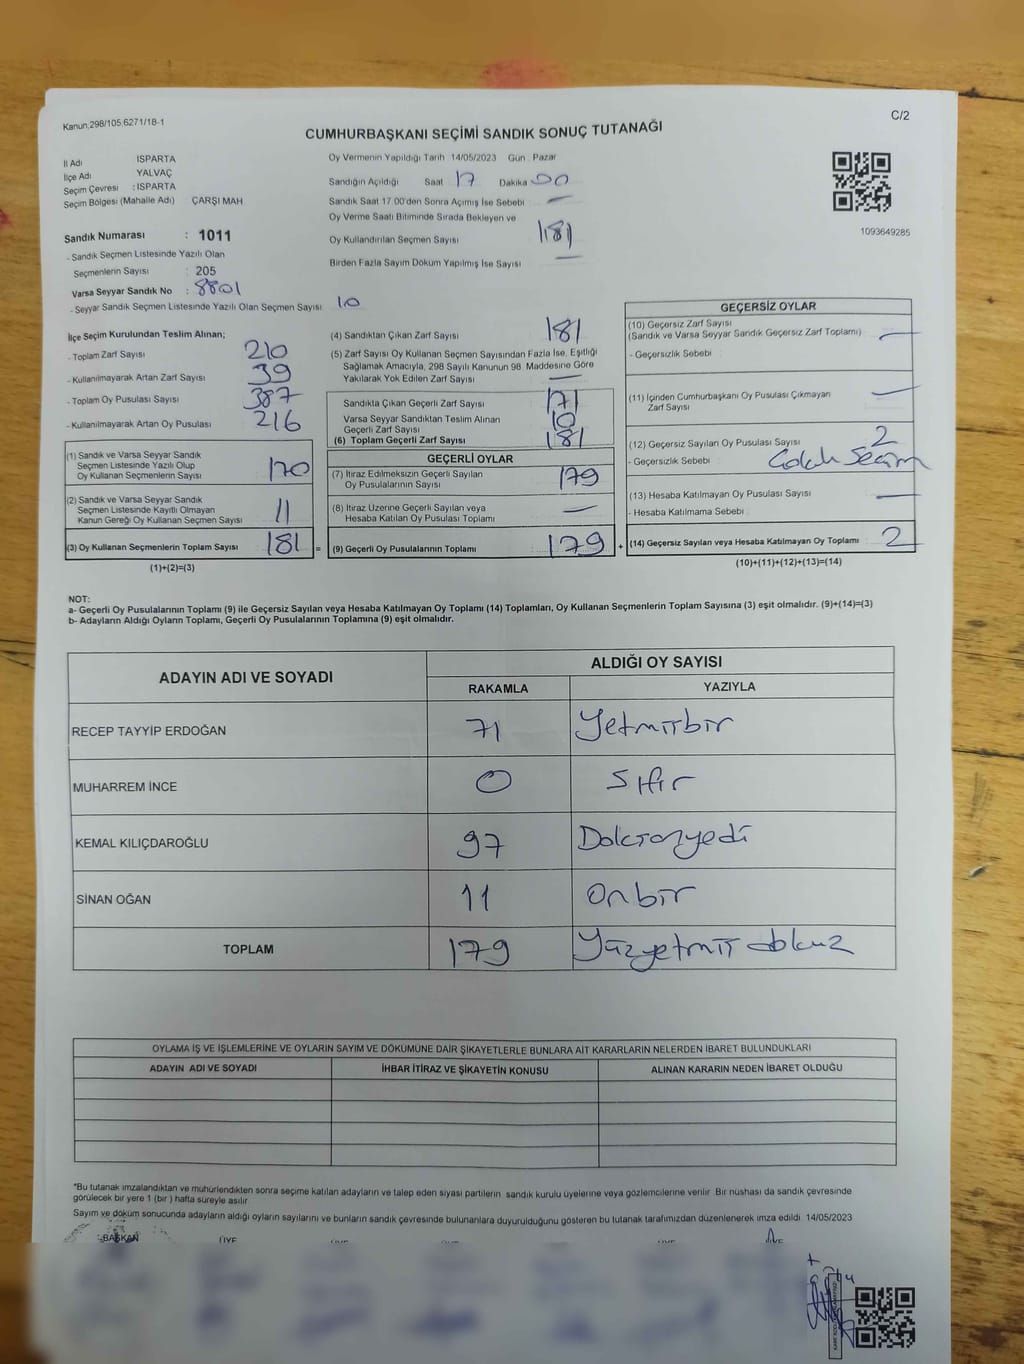 Kanun;298/105;6271/18-1
C/2
CUMHURBAŞKANI SEÇİMİ SANDIK SONUÇ TUTANAĞI
İl Adı ISPARTA
İlçe Adı YALVAÇ
Seçim Çevresi : ISPARTA
Seçim Bölgesi (Mahalle Adı) ÇARŞI MAH
Sandık Numarası : 1011
- Sandık Seçmen Listesinde Yazılı Olan
Seçmenlerin Sayısı : 205
Varsa Seyyar Sandık No : 8801
- Seyyar Sandık Seçmen Listesinde Yazılı Olan Seçmen Sayısı : 10
Oy Vermenin Yapıldığı Tarih 14/05/2023 Gün : Pazar
Sandığın Açıldığı Saat 17 Dakika 00
Sandık Saat 17.00'den Sonra Açımış İse Sebebi : —
Oy Verme Saati Bitiminde Sırada Bekleyen ve
Oy Kullandırılan Seçmen Sayısı 181
Birden Fazla Sayım Döküm Yapılmış İse Sayısı —
1093649285
İlçe Seçim Kurulundan Teslim Alınan;
- Toplam Zarf Sayısı 210
- Kullanılmayarak Artan Zarf Sayısı 39
- Toplam Oy Pusulası Sayısı 387
- Kullanılmayarak Artan Oy Pusulası 216
(1) Sandık ve Varsa Seyyar Sandık
Seçmen Listesinde Yazılı Olup
Oy Kullanan Seçmenlerin Sayısı 170
(2) Sandık ve Varsa Seyyar Sandık
Seçmen Listesinde Kayıtlı Olmayan
Kanun Gereği Oy Kullanan Seçmen Sayısı 11
(3) Oy Kullanan Seçmenlerin Toplam Sayısı 181 =
(1)+(2)=(3)
(4) Sandıktan Çıkan Zarf Sayısı 181
(5) Zarf Sayısı Oy Kullanan Seçmen Sayısından Fazla İse, Eşitliği
Sağlamak Amacıyla, 298 Sayılı Kanunun 98. Maddesine Göre
Yakılarak Yok Edilen Zarf Sayısı —
Sandıkta Çıkan Geçerli Zarf Sayısı 171
Varsa Seyyar Sandıktan Teslim Alınan
Geçerli Zarf Sayısı 10
(6) Toplam Geçerli Zarf Sayısı 181
GEÇERLİ OYLAR
(7) İtiraz Edilmeksizin Geçerli Sayılan
Oy Pusulalarının Sayısı 179
(8) İtiraz Üzerine Geçerli Sayılan veya
Hesaba Katılan Oy Pusulası Toplamı —
(9) Geçerli Oy Pusulalarının Toplamı 179 +
GEÇERSİZ OYLAR
(10) Geçersiz Zarf Sayısı
(Sandık ve Varsa Seyyar Sandık Geçersiz Zarf Toplamı) —
- Geçersizlik Sebebi :
(11) İçinden Cumhurbaşkanı Oy Pusulası Çıkmayan
Zarf Sayısı —
(12) Geçersiz Sayılan Oy Pusulası Sayısı 2
- Geçersizlik Sebebi : Çoklu Seçim
(13) Hesaba Katılmayan Oy Pusulası Sayısı —
- Hesaba Katılmama Sebebi :
(14) Geçersiz Sayılan veya Hesaba Katılmayan Oy Toplamı : 2
(10)+(11)+(12)+(13)=(14)
NOT:
a- Geçerli Oy Pusulalarının Toplamı (9) ile Geçersiz Sayılan veya Hesaba Katılmayan Oy Toplamı (14) Toplamları, Oy Kullanan Seçmenlerin Toplam Sayısına (3) eşit olmalıdır. (9)+(14)=(3)
b- Adayların Aldığı Oyların Toplamı, Geçerli Oy Pusulalarının Toplamına (9) eşit olmalıdır.
ADAYIN ADI VE SOYADI ALDIĞI OY SAYISI
RAKAMLA YAZIYLA
RECEP TAYYİP ERDOĞAN 71 Yetmişbir
MUHARREM İNCE 0 Sıfır
KEMAL KILIÇDAROĞLU 97 Doksanyedi
SİNAN OĞAN 11 Onbir
TOPLAM 179 Yüzyetmiş dokuz
OYLAMA İŞ VE İŞLEMLERİNE VE OYLARIN SAYIM VE DÖKÜMÜNE DAİR ŞİKAYETLERLE BUNLARA AİT KARARLARIN NELERDEN İBARET BULUNDUKLARI
ADAYIN ADI VE SOYADI İHBAR İTİRAZ VE ŞİKAYETİN KONUSU ALINAN KARARIN NEDEN İBARET OLDUĞU
*Bu tutanak imzalandıktan ve mühürlendikten sonra seçime katılan adayların ve talep eden siyasi partilerin sandık kurulu üyelerine veya gözlemcilerine verilir. Bir nüshası da sandık çevresinde
görülecek bir yere 1 (bir ) hafta süreyle asılır.
Sayım ve döküm sonucunda adayların aldığı oyların sayılarını ve bunların sandık çevresinde bulunanlara duyurulduğunu gösteren bu tutanak tarafımızdan düzenlenerek imza edildi 14/05/2023
BAŞKAN ÜYE